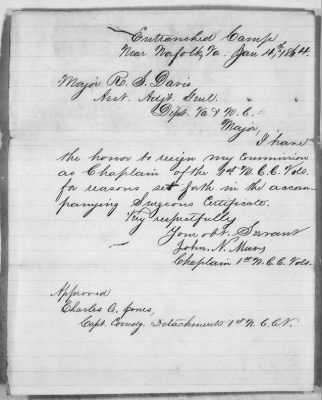 Entrenched Camp
Near Norfolk, Va. Jan 14th, 1864.
Major R. S. Davis
Asst. Adjt. Genl.
Dept. Va & N. C.
Major,
I have
the honor to resign my commission
as Chaplain of the N. C. C. Vols.
for reasons set forth in the accom-
panying Surgeons Certificate.
Very respectfully
Your obt. Servant
John. N. Mars
Chaplain 1st N. C. C. Vols.
Approved
Charles A. Jones,
Capt. Comdg. Detachments 1st N. C. C. V.